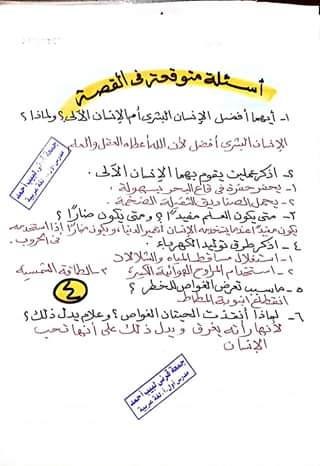 أسئلة متوقعة فى القصة
١- أيهما أفضل الإنسان البشرى أم الإنسان الآلى؟ ولماذا؟
الإنسان البشرى أفضل لأن الله أعطاه العقل
٢- اذكر عملين يقوم بهما الإنسان الآلى.
١- يحفر حفرة فى قاع البحر بسهولة
٢- يحمل الصناديق الثقيلة الضخمة.
٣- متى يكون العلم مفيدًا؟ ومتى يكون ضارًا؟
يكون مفيدًا عندما يستخدمه الإنسان لخير الدنيا ويكون ضارًا إذا استخدمه
فى الحروب.
٤- اذكر طرق توليد الكهرباء.
١- استغلال مساقط المياه والشلالات
٢- استخدام المراوح الهوائية الكبيرة ٣- الطاقة الشمسية
٥- ما سبب تعرض الغواص للخطر؟
انقطاع أنبوبة المطاط
٤
٦- لماذا أنقذت الحيتان الغواص؟ وعلام يدل ذلك؟
لأنها رأته يغرق ويدل ذلك على أنها تحب
الإنسان
جمعة قرنى لبيب أحمد
مدرس أول أ. لغة عربية
جمعة قرنى لبيب أحمد
مدرس أول أ. لغة عربية